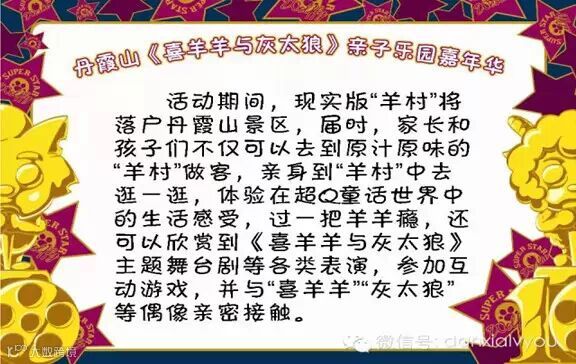 丹霞山《喜羊羊与灰太狼》亲子乐园嘉年华
活动期间，现实版“羊村”将
落户丹霞山景区，届时，家长和
孩子们不仅可以去到原汁原味的
“羊村”做客，亲身到“羊村”中去
逛一逛，体验在超Q童话世界中
的生活感受，过一把羊羊瘾，还
可以欣赏到《喜羊羊与灰太狼》
主题舞台剧等各类表演，参加互
动游戏，并与“喜羊羊”“灰太狼”
等偶像亲密接触。
SUPER STAR
SUPER STAR
SUPER STAR
SUPER STAR
微信号: danxialvyou
大数跨境